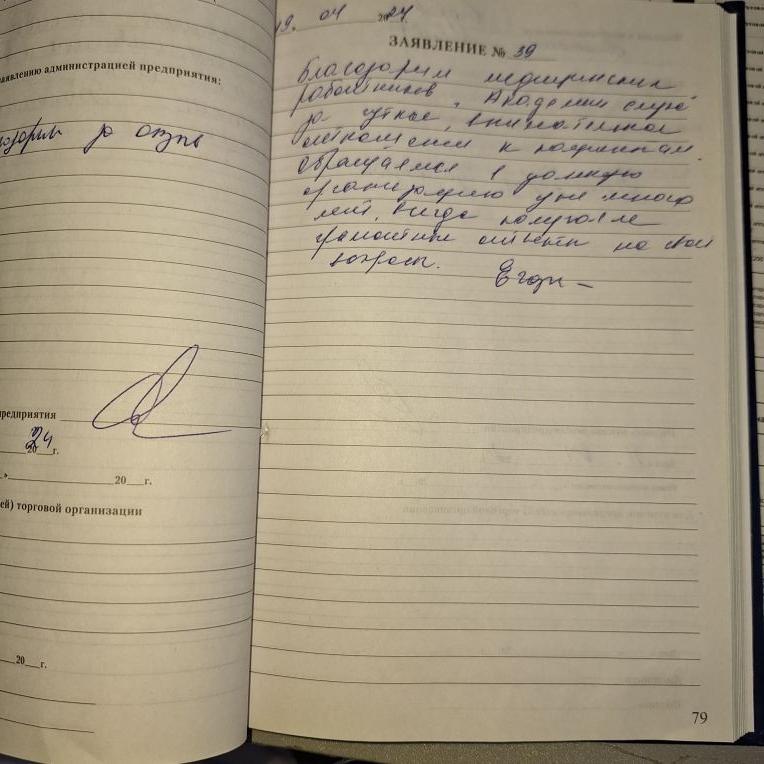 заявлению администрацией предприятия:
за отзыв
предприятия
2024 г.
20 г.
ей) торговой организации
20 г.
19. 04 2024.
ЗАЯВЛЕНИЕ № 39
Благодарим медицинских
работников Академии слуха
за чуткое, внимательное
отношение к пациентам.
Обращаемся в данную
организацию уже много
лет, всегда получали
грамотные ответы на свои
вопросы.
79